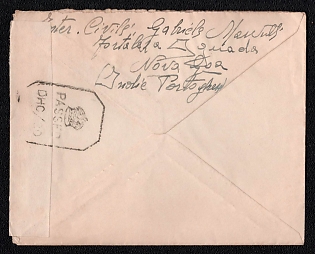 Inter. Civili Gabriele
Fortaleza Aguada
Nova Goa
Indie Portoghesi
PASSED
DHC/